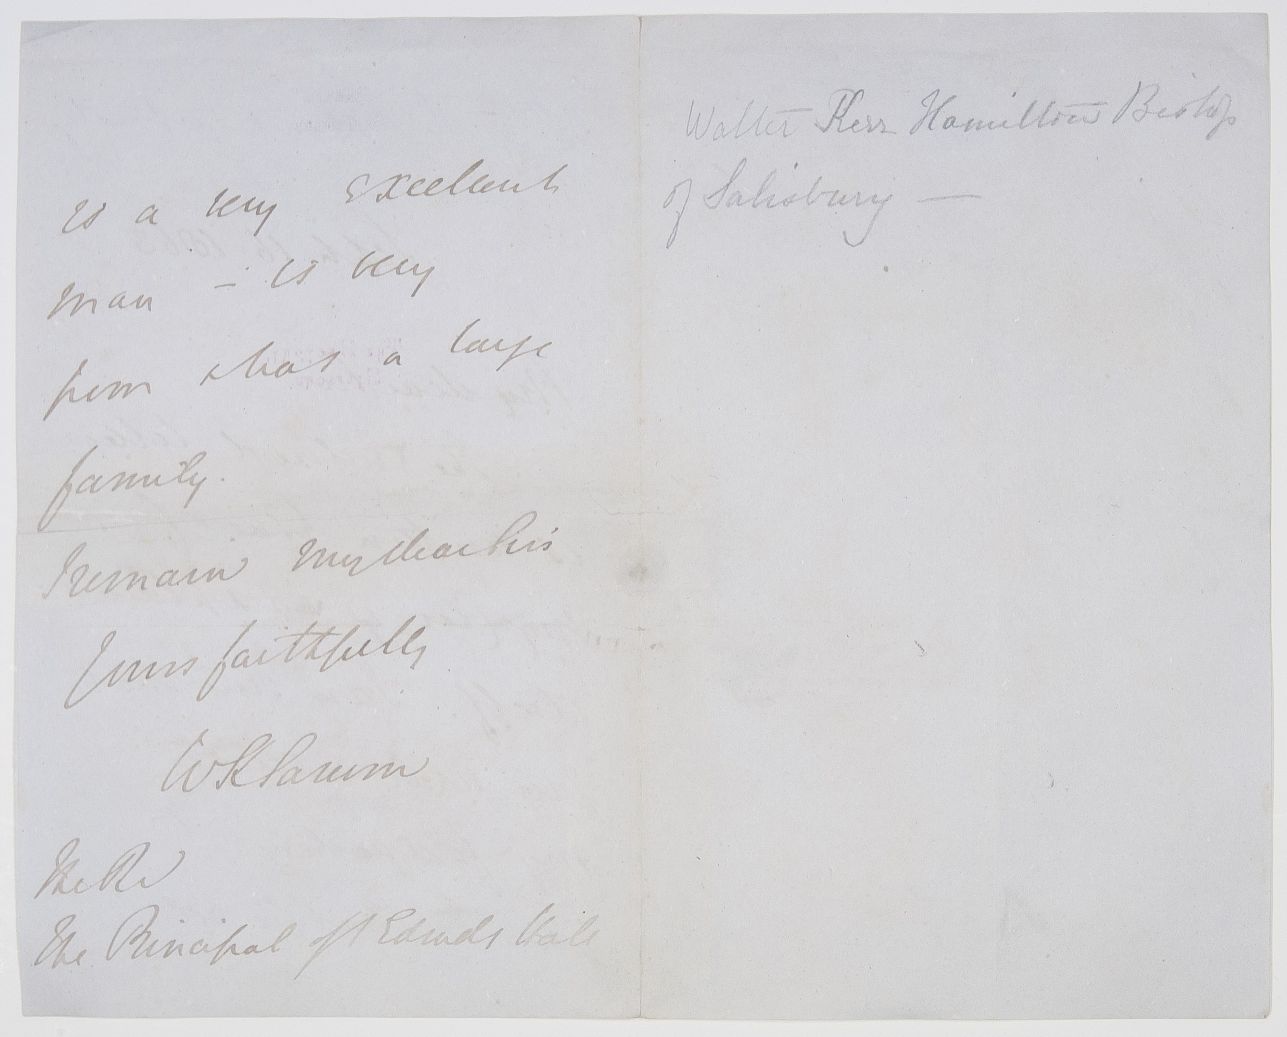 is a very Excellent
man - is very
poor & has a large
family.
I remain my dear Sir
Yours faithfully
W K Sarum
The Rd
The Principal of St Edmds Hall
Walter Kerr Hamilton Bishop
of Salisbury —